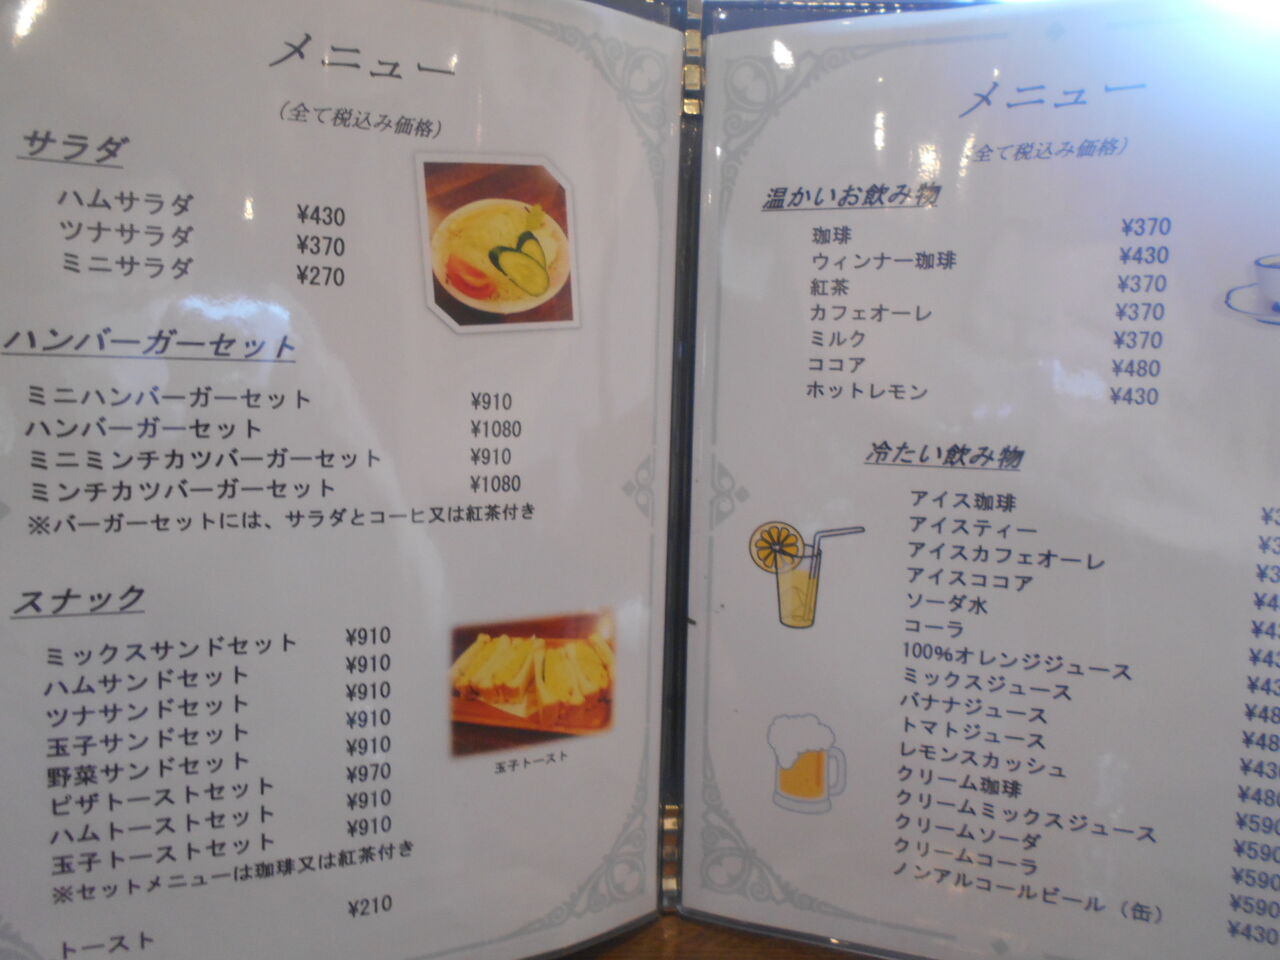 メニュー
(全て税込み価格)
サラダ
ハムサラダ ¥430
ツナサラダ ¥370
ミニサラダ ¥270
ハンバーガーセット
ミニハンバーガーセット ¥910
ハンバーガーセット ¥1080
ミニミンチカツバーガーセット ¥910
ミンチカツバーガーセット ¥1080
※バーガーセットには、サラダとコーヒ又は紅茶付き
スナック
ミックスサンドセット ¥910
ハムサンドセット ¥910
ツナサンドセット ¥910
玉子サンドセット ¥910
野菜サンドセット ¥910
ピザトーストセット ¥970
ハムトーストセット ¥910
玉子トーストセット ¥910
※セットメニューは珈琲又は紅茶付き
トースト ¥210
玉子トースト
メニュー
全て税込み価格)
温かいお飲み物
珈琲 ¥370
ウィンナー珈琲 ¥430
紅茶 ¥370
カフェオーレ ¥370
ミルク ¥370
ココア ¥480
ホットレモン ¥430
冷たい飲み物
アイス珈琲
アイスティー
アイスカフェオーレ
アイスココア
ソーダ水
コーラ
100%オレンジジュース
ミックスジュース
バナナジュース
トマトジュース
レモンスカッシュ
クリーム珈琲 ¥590
クリームミックスジュース ¥590
クリームソーダ ¥590
クリームコーラ ¥590
ノンアルコールビール（缶） ¥430